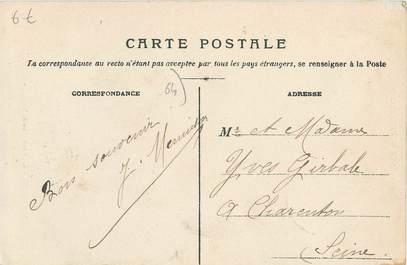 6€
CARTE POSTALE
La correspondance au recto n'étant pas acceptée par tous les pays étrangers, se renseigner à la Poste
CORRESPONDANCE
64
Bon souvenir
J.
ADRESSE
Mr et Madame
Yves Girbale
A Charenton
Seine.